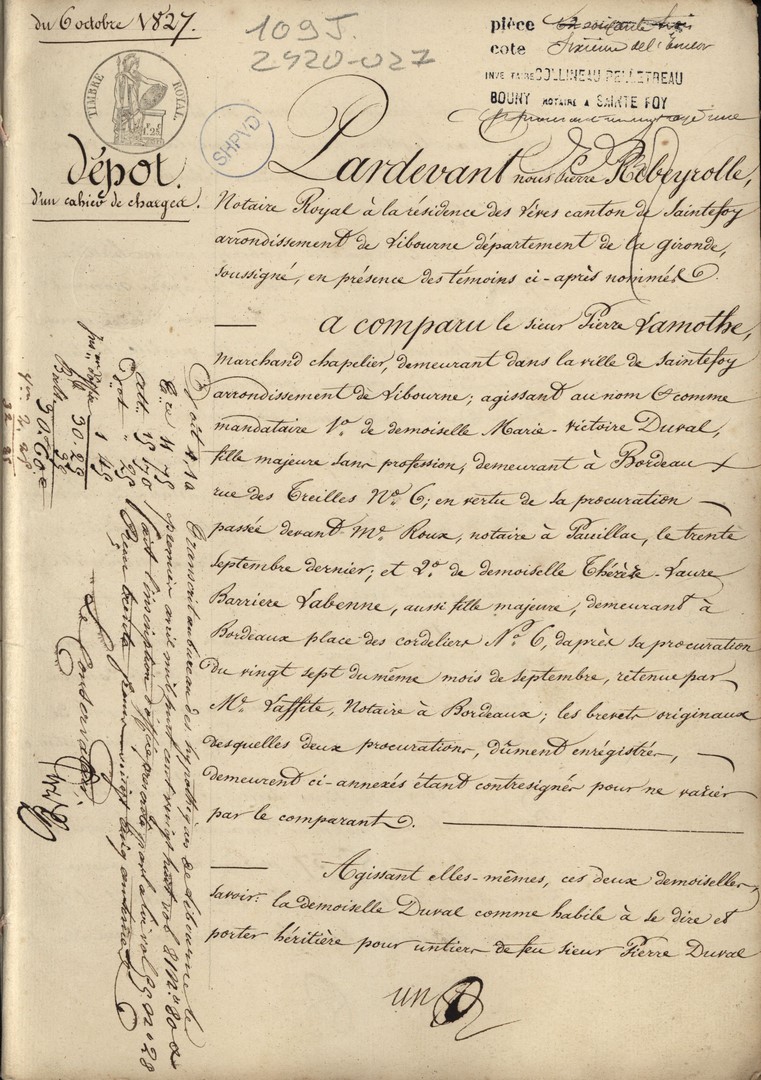 du 6 octobre 1827.
109 J.
2420-027
pièce
cote
INVENTAIRE COLLINEAU PELLETREAU
BOUNY NOTAIRE A SAINTE FOY
TIMBRE ROYAL
SHPVD
dépot.
d'un cahier de charges.
Pardevant nous Pierre Rebeyrolle,
Notaire Royal à la résidence des Lèves canton de Saintefoy
arrondissement de Libourne département de la gironde,
soussigné, en présence des témoins ci-après nommés.
a comparu le sieur Pierre Lamothe,
marchand chapelier, demeurant dans la ville de Saintefoy
arrondissement de Libourne; agissant au nom & comme
mandataire 1o. de demoiselle Marie-victoire Duval,
fille majeure sans profession, demeurant à Bordeaux
rue des Treilles No. 6; en vertu de sa procuration
passée devant Me. Roux, notaire à Pauillac, le trente
septembre dernier; et 2o. de demoiselle Thérèse-Laure
Barriere Labenne, aussi fille majeure, demeurant à
Bordeaux place des cordeliers No. 6, daprès sa procuration
du vingt sept du même mois de septembre, retenue par
Me. Laffite, Notaire à Bordeaux; les brevets originaux
desquelles deux procurations, dûment enrégistrés,
demeurent ci-annexés étant contresignés pour ne varier
par le comparant.
Agissant elles-mêmes, ces deux demoiselles,
savoir: la demoiselle Duval comme habile à se dire et
porter héritière pour un tiers de feu sieur Pierre Duval
un
Transcrit au bureau des hypothèques de Libourne le
premier avril mil huit cent vingt huit vol 81 No. 80 &
fait l'inscription d'office
Le Conservateur